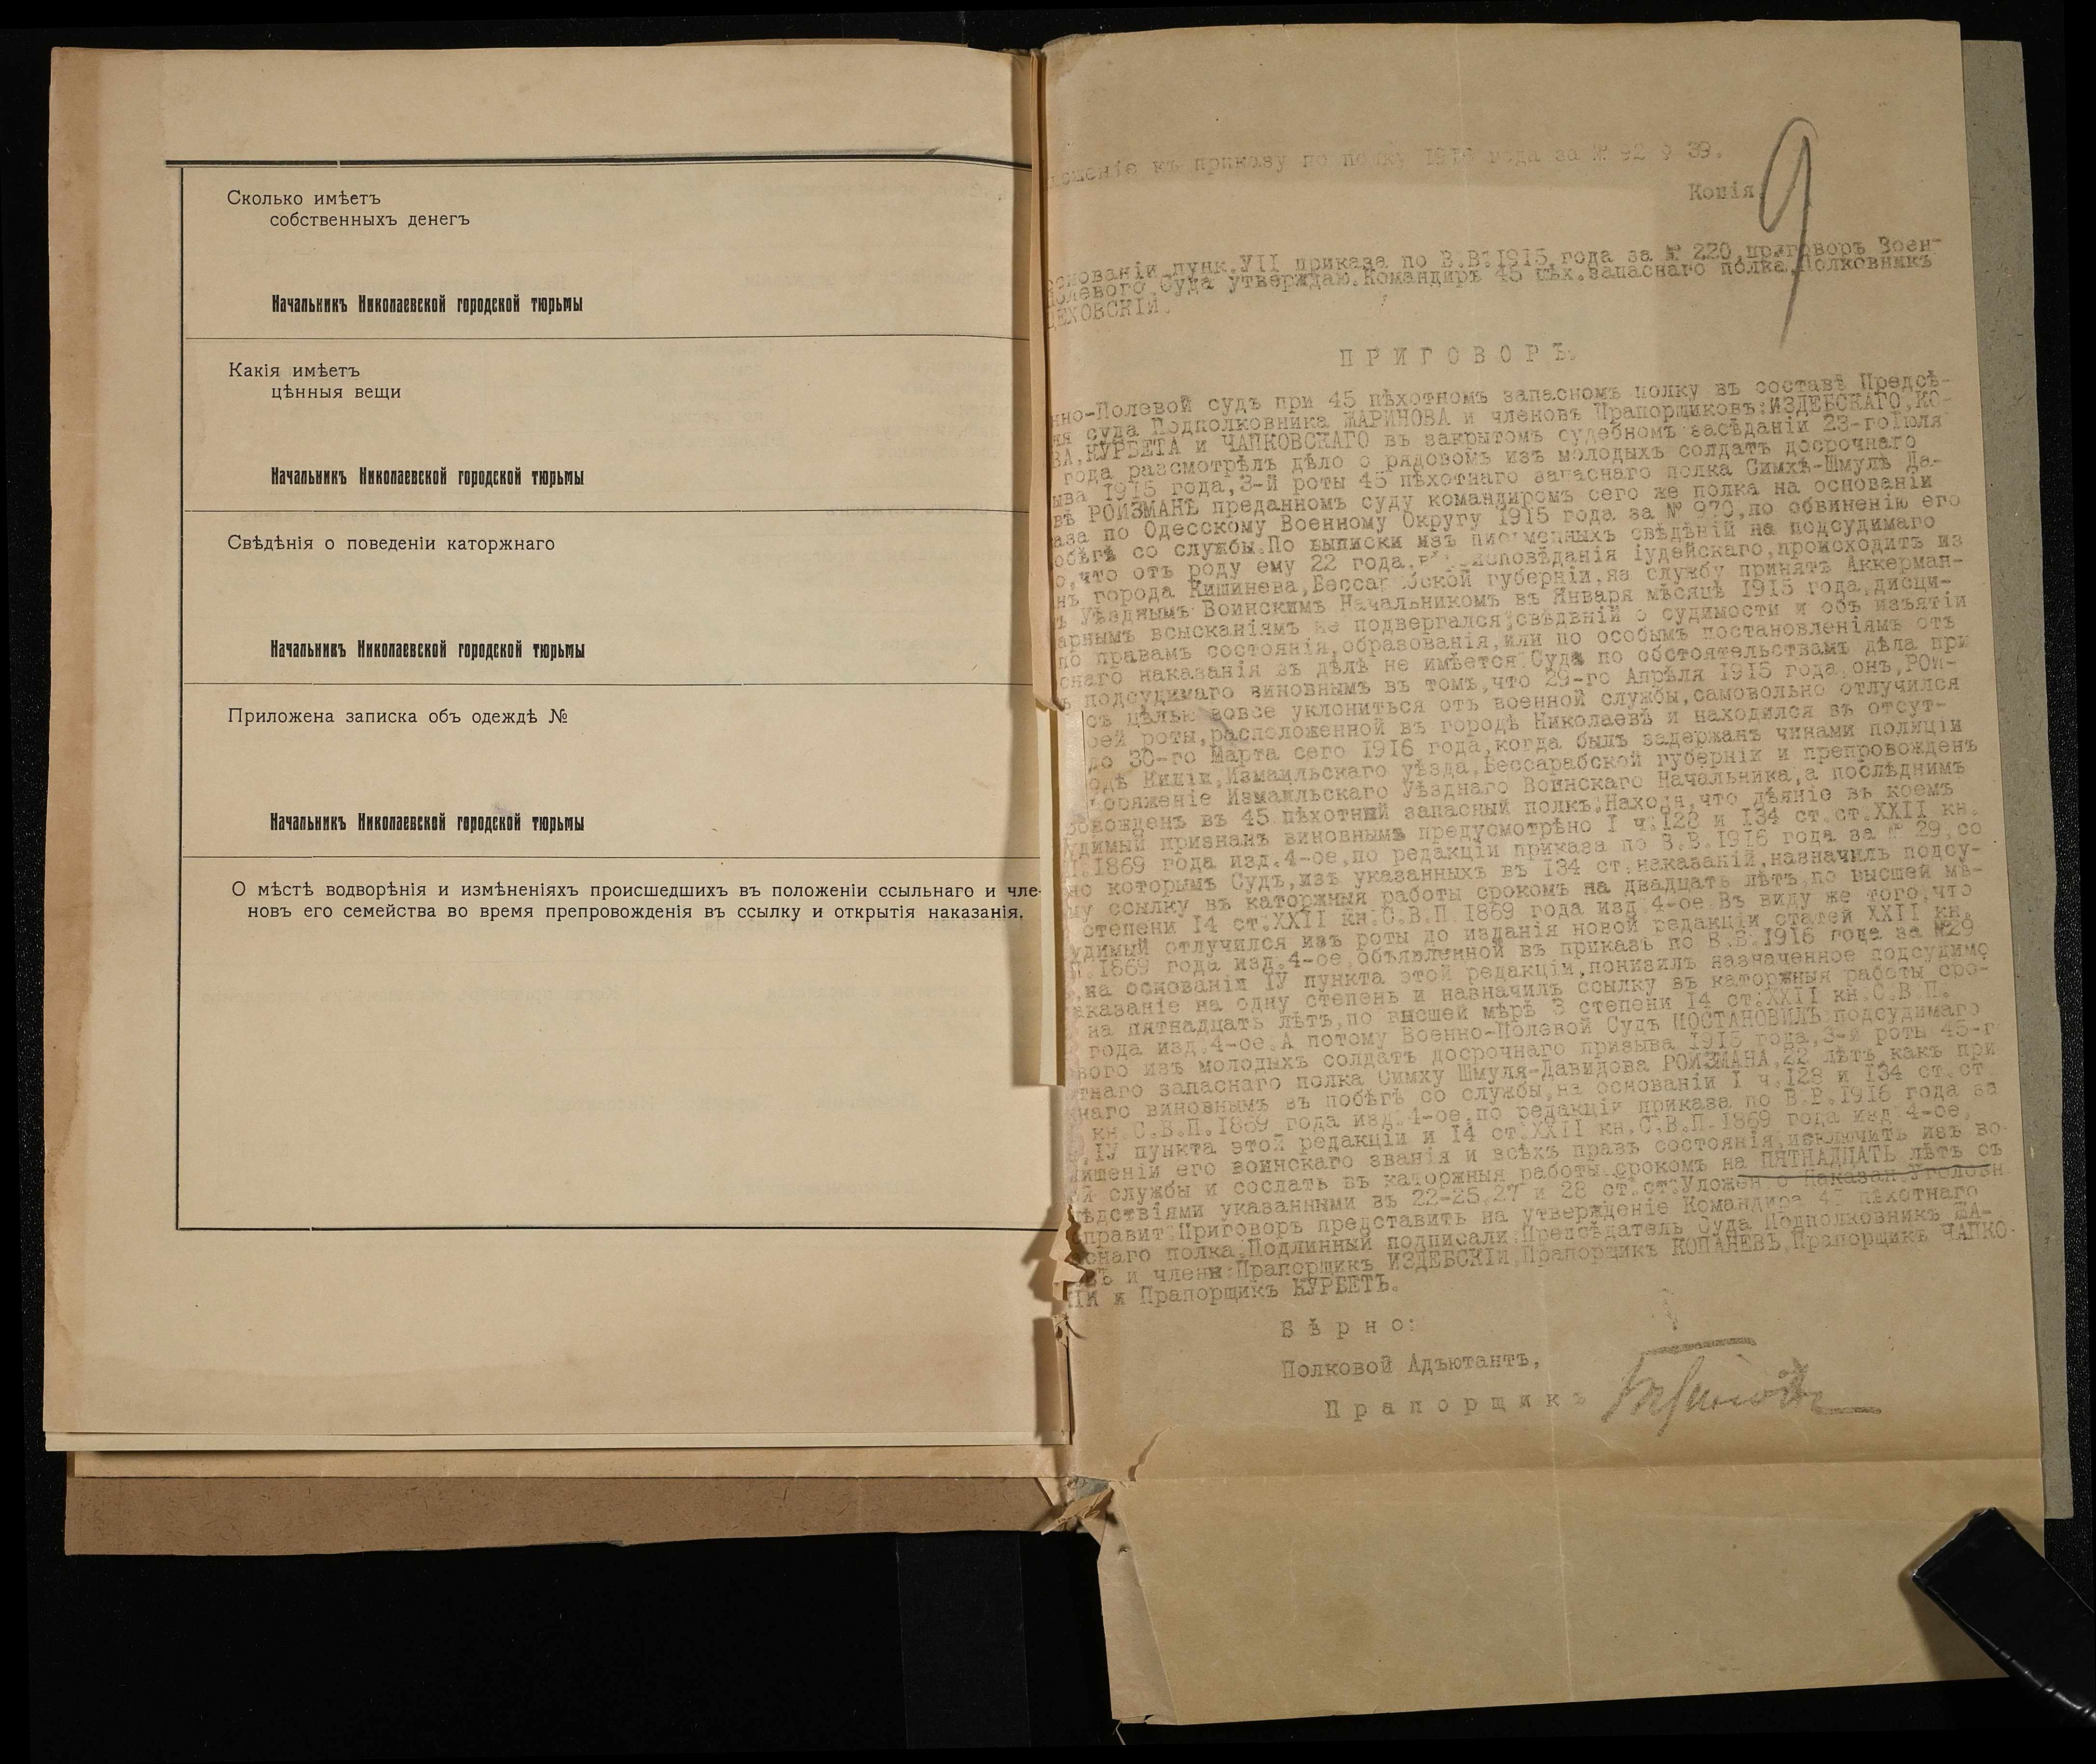 Сколько имѣетъ
собственныхъ денегъ
Начальникъ Николаевской городской тюрьмы
Какія имѣетъ
цѣнныя вещи
Начальникъ Николаевской городской тюрьмы
Свѣдѣнія о поведеніи каторжнаго
Начальникъ Николаевской городской тюрьмы
Приложена записка объ одеждѣ №
Начальникъ Николаевской городской тюрьмы
О мѣстѣ водворѣнія и измѣненіяхъ происшедшихъ въ положеніи ссыльнаго и чле-
новъ его семейства во время препровожденія въ ссылку и открытія наказанія.
къ приказу по полку 1916 года за № 92 § 39.
Копія
9
основаніи пунк.УІІ приказа по В.В.1915 года за № 220,приговоръ Воен-
Полевого Суда утверждаю.Командиръ 45 пѣх.запаснаго полка,Полковникъ
ЦЕХОВСКІЙ.
ПРИГОВОРЪ.
нно-Полевой судъ при 45 пѣхотномъ запасномъ полку въ составѣ Предсѣ-
ля суда Подполковника МАРИНОВА и членовъ Прапорщиковъ:ИЗДЕБСКАГО,КО-
ВА,КУРБЕТА и ЧАПКОВСКАГО въ закрытомъ судебномъ засѣданіи 23-гоІюля
года разсмотрѣлъ дѣло о рядовомъ изъ молодыхъ солдатъ досрочнаго
ыва 1915 года,3-й роты 45 пѣхотнаго запаснаго полка Симхѣ-Шмулѣ Да-
вѣ РОЙЗМАНѢ преданномъ суду командиромъ сего же полка на основаніи
аза по Одесскому Военному Округу 1915 года за № 970,по обвиненію его
обѣгѣ со службы.По выписки изъ письменныхъ свѣдѣній на подсудимаго
о,что отъ роду ему 22 года, исповѣданія іудейскаго,происходитъ из
нъ города Кишинева,Бессарабской губерніи,на службу принятъ Аккерман-
ъ Уѣзднымъ Воинскимъ Начальникомъ въ Январѣ мѣсяцѣ 1915 года,дисци-
арнымъ взысканіямъ не подвергался;свѣдѣній о судимости и объ изъятіи
по правамъ состоянія,образованія,или по особымъ постановленіямъ отъ
снаго наказанія въ дѣлѣ не имѣется.Судъ по обстоятельствамъ дѣла при
ъ подсудимаго виновнымъ въ томъ,что 29-го Апрѣля 1915 года,онъ,РОЙ-
съ цѣлью вовсе уклониться отъ военной службы,самовольно отлучился
оей роты,расположенной въ городѣ Николаевѣ и находился въ отсут-
до 30-го Марта сего 1916 года,когда былъ задержанъ чинами полиціи
одѣ Киліи,Измаильскаго уѣзда,Бессарабской губерніи и препровожденъ
поряженіе Измаильскаго Уѣзднаго Воинскаго Начальника,а послѣднимъ
овожденъ въ 45 пѣхотный запасный полкъ.Находя,что дѣяніе въ коемъ
удимый признанъ виновнымъ предусмотрѣно I ч.128 и 134 ст.ст.XXII кн.
П.1869 года изд.4-ое,по редакціи приказа по В.В.1916 года за № 29,со
но которымъ Судъ,изъ указанныхъ въ 134 ст.наказаній,назначилъ подсу-
му ссылку въ каторжныя работы срокомъ на двадцать лѣтъ,по высшей мѣ-
степени 14 ст.XXII кн.С.В.П.1869 года изд.4-ое.Въ виду же того,что
удимый отлучился изъ роты до изданія новой редакціи статей XXII кн.
П.1869 года изд.4-ое,объявленной въ приказѣ по В.В.1916 года за №29
,на основаніи ІУ пункта этой редакціи,понизилъ назначенное подсудимо
аказаніе на одну степень и назначилъ ссылку въ каторжныя работы сро-
на пятнадцать лѣтъ,по высшей мѣрѣ 3 степени 14 ст.XXII кн.С.В.П.
года изд.4-ое.А потому Военно-Полевой Судъ ПОСТАНОВИЛЪ:подсудимаго
вого изъ молодыхъ солдатъ досрочнаго призыва 1915 года,3-й роты 45-г
тнаго запаснаго полка Симху Шмуля-Давидова РОЙЗМАНА,22 лѣтъ,какъ при
ннаго виновнымъ въ побѣгѣ со службы,на основаніи I ч.128 и 134 ст.ст
кн.С.В.П.1869 года изд.4-ое,по редакціи приказа по В.В.1916 года за
,ІУ пункта этой редакціи и 14 ст.XXII кн.С.В.П.1869 года изд.4-ое,
лишеніи его воинскаго званія и всѣхъ правъ состоянія,исключить изъ во-
ой службы и сослать въ каторжныя работы срокомъ на ПЯТНАДЦАТЬ лѣтъ съ
лѣдствіями указанными въ 22-25,27 и 28 ст.ст.Уложен.о Наказан.Уголовн
справит.Приговоръ представить на утвержденіе Командира 45 пѣхотнаго
снаго полка.Подлинный подписали:Предсѣдатель Суда Подполковникъ МА-
ВЪ и члены:Прапорщикъ ИЗДЕБСКІЙ,Прапорщикъ КОПАНЕВЪ,Прапорщикъ ЧАПКО-
ІЙ и Прапорщикъ КУРБЕТЪ.
Вѣрно:
Полковой Адъютантъ,
Прапорщикъ